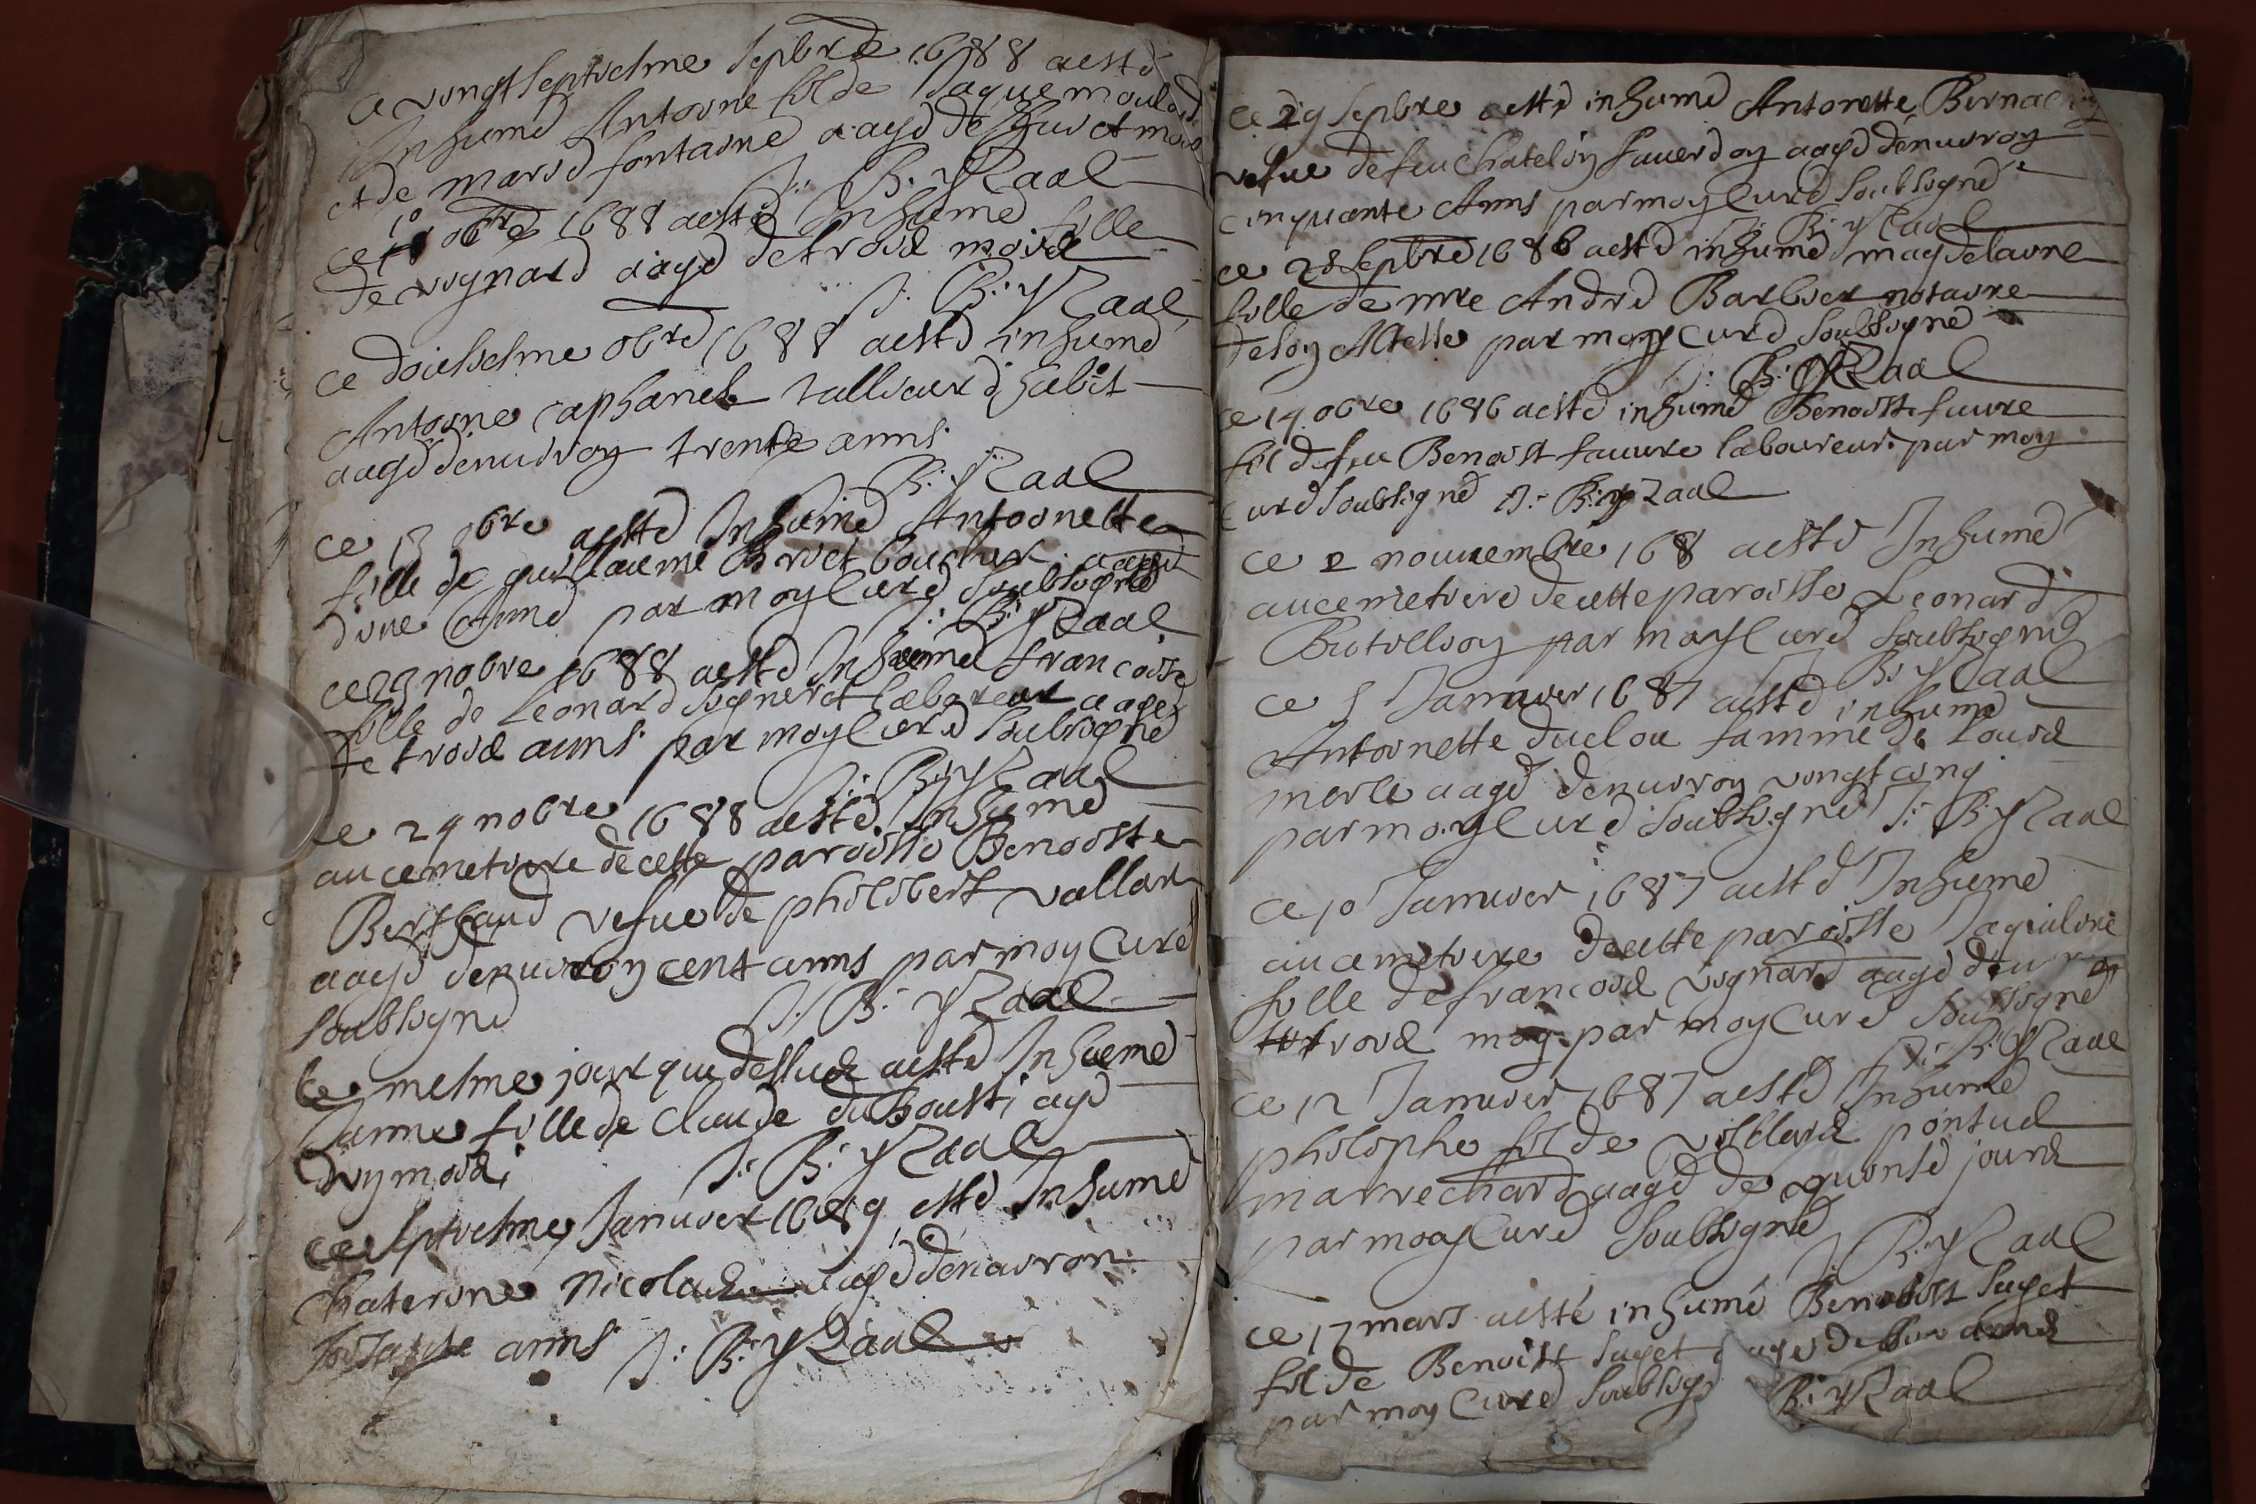 ce vingt septiesme sepbre 1688 a esté
Inhumé Antoine fil de Jaque
et de marie fontaine aagé de huit mois
J: B: Raal
ce 1o 8bre 1688 a esté Inhumé fille
de vignard aagé de trois mois
J: B: Raal
ce doisiesme 8bre 1688 a esté inhumé
Antoine caphanel tallieur d'habit
aagé denuiron trente anns
B: Raal
ce 13 8bre a esté Inhumé Antoinette
fille de guillaume Brivet boucher aagé
dune Anné par moy Curé soubsigné
J: B: Raal
ce 23 nobre 1688 a esté Inhumé francoise
fille de Leonard signeret laboreur aagé
de trois anns par moy Curé soubsigné
J: B: Raal
ce 29 nobre 1688 a esté Inhumé
au cemetiere de cette paroisse Benoiste
Berthaud vefue de philibert vallar
aagé denuiron cent anns par moy Curé
soubsigné J: B: Raal
le mesme jour que dessus a esté Inhumé
Janne fille de Claude agé
J: B: Raal
ce septiesme Januier 1689 esté Inhumé
Chaterine Nicolas aagé denuiron
soisante anns J: B: Raal
ce 29 sepbre a esté inhumé Antonette
vefue de feu aagé denuiron
cinquante Anns par moy Curé soubsigné
J: B: Raal
ce 28 sepbre 1686 a esté inhumé magdelaine
fille de mre André Barbier notaire
par moy Curé soubsigné
J: B: Raal
ce 14 8bre 1686 a esté inhumé Benoist fauure
fil de feu Benoist fauure laboureur par moy
Curé soubsigné J: B: Raal
ce 2 nouuembre 168 a esté Inhumé
au cemetiere de cette paroisse Leonard
par moy Curé soubsigné
J: B: Raal
ce 5 Januier 1687 a esté inhumé
Antoinette duclou famme de Louis
merle aagé denuiron vingt cinq
par moy Curé soubsigné J: B: Raal
ce 10 Januier 1687 a esté Inhumé
au cemetiere de cette paroisse
fille de francois vignard aagé
trois moy par moy Curé soubsigné
J: B: Raal
ce 12 Januier 1687 a esté Inhumé
philiphe fil de
aagé de quinse jours
par moy Curé soubsigné
J: B: Raal
ce 17 mars a esté inhumé Benoist suget
fil de Benoist suget
par moy Curé B: Raal